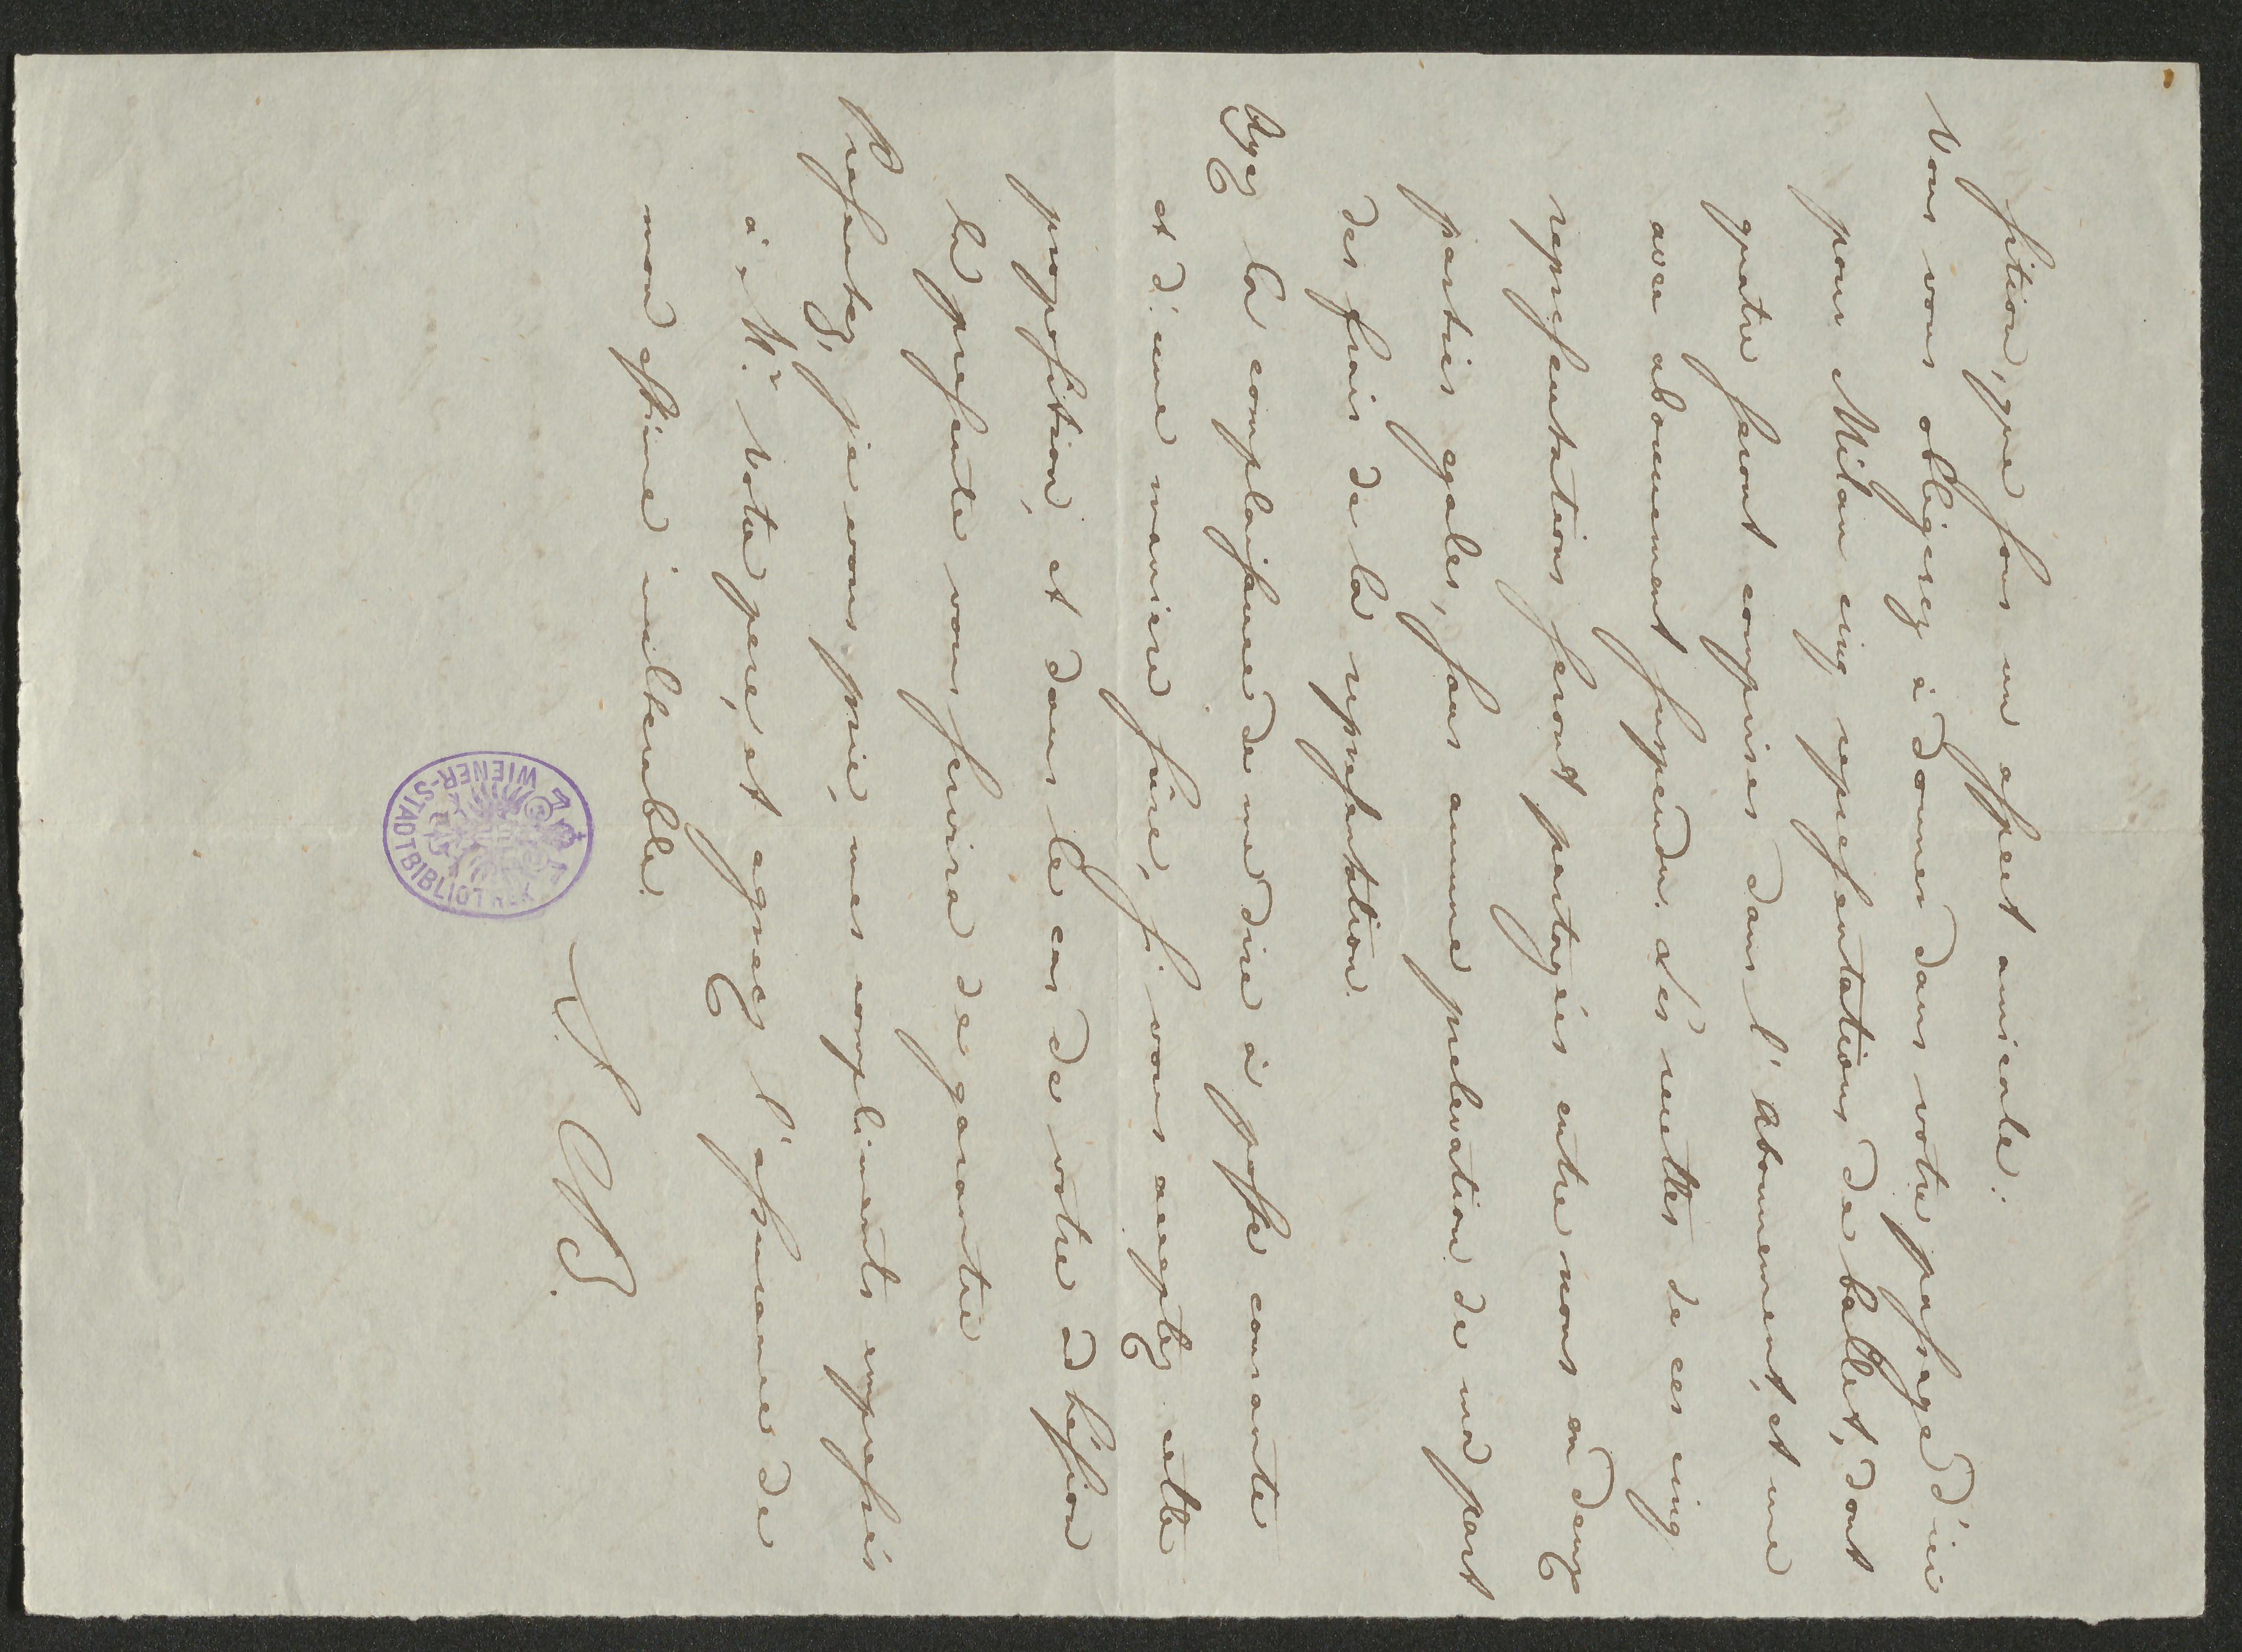 sition, que sous un aspect amicale:
Vous vous obligerez à donner dans votre passage d'ici
pour Milan cinq representations de ballet, dont
quatre seront comprises dans l'Abonnement, et une
avec abonnement suspendu. Les recettes de ces cinq
representations seront partagées entre nous en deux
parties egales, sans aucune prelevation de ma part
des frais de la representation.
Ayez la complaisence de me dire à poste courante
et d'une maniere sûre, si vous acceptez cette
proposition, et dans le cas de votre adhesion
la presente vous servira de garantie
Presentez, je vous prie, mes compliments empressés
à Mr. Votre pere, et agreez l'assurance de
mon estime inalterable.
WIENER-STADTBIBLIOTHEK